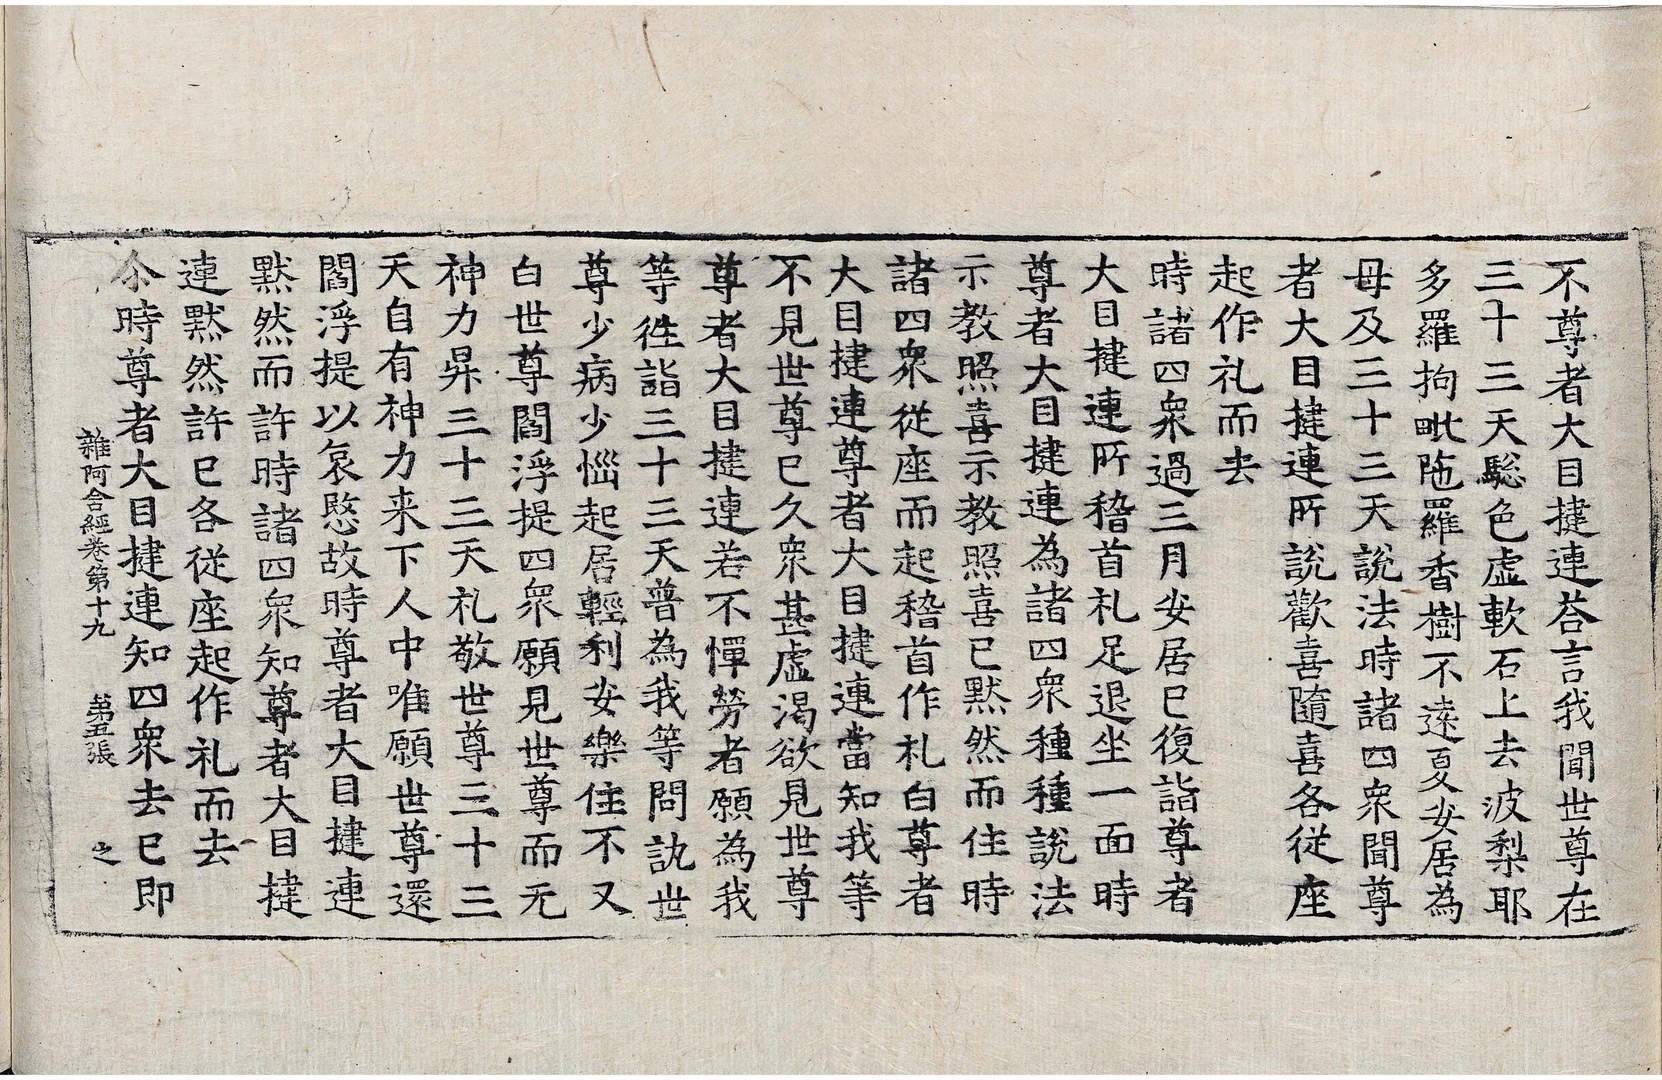 不尊者大目揵連荅言我聞世尊在
三十三天驄色虛軟石上去波梨耶
多羅拘毗陁羅香樹不遠夏安居為
母及三十三天說法時諸四衆聞尊
者大目揵連所說歡喜隨喜各從座
起作礼而去
時諸四衆過三月安居已復詣尊者
大目揵連所稽首礼足退坐一面時
尊者大目揵連為諸四衆種種說法
示教照喜示教照喜已黙然而住時
諸四衆從座而起稽首作礼白尊者
大目揵連尊者大目揵連當知我等
不見世尊已久衆甚虛渴欲見世尊
尊者大目揵連若不憚勞者願為我
等徃詣三十三天普為我等問訊世
尊少病少惱起居輕利安樂住不又
白世尊閻浮提四衆願見世尊而无
神力昇三十三天礼敬世尊三十三
天自有神力来下人中唯願世尊還
閻浮提以哀愍故時尊者大目揵連
黙然而許時諸四衆知尊者大目揵
連黙然許已各從座起作礼而去
尒時尊者大目揵連知四衆去已即
雜阿含經卷第十九 第五張 之